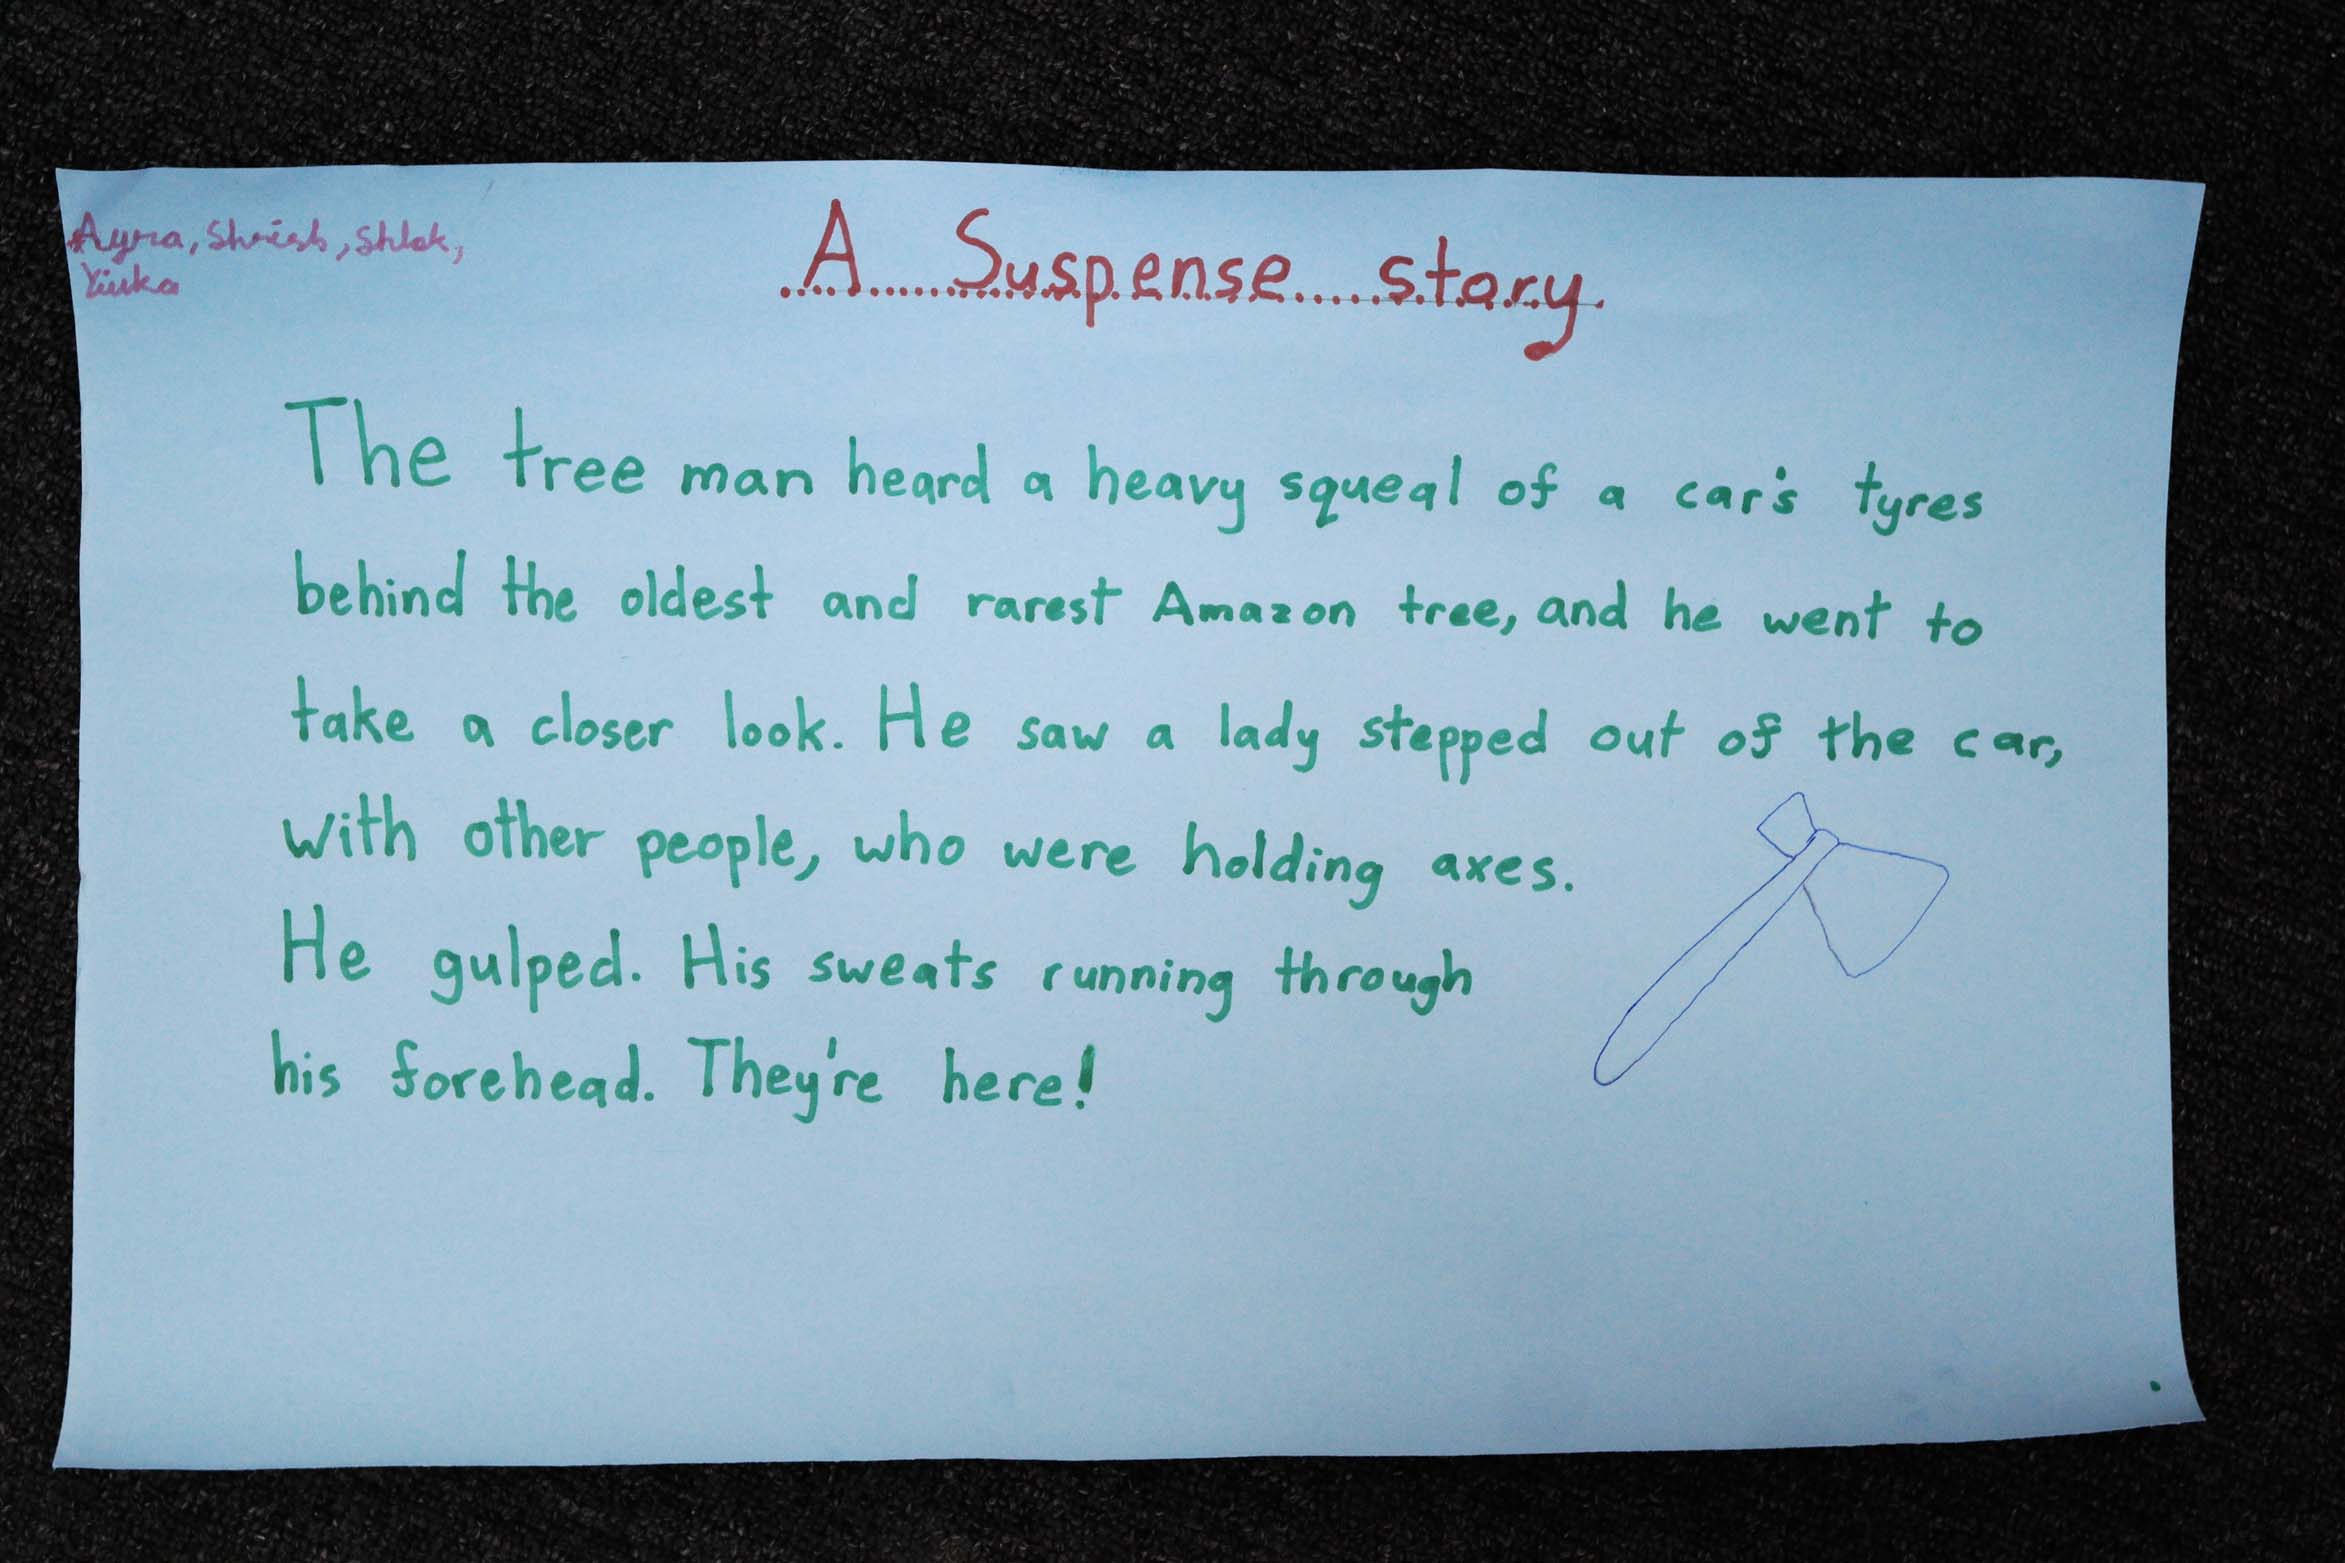 Ayra, Shrish, Shlok,
A Suspense story.
The tree man heard a heavy squeal of a car's tyres
behind the oldest and rarest Amazon tree, and he went to
take a closer look. He saw a lady stepped out of the car,
with other people, who were holding axes.
He gulped. His sweats running through
his forehead. They're here!